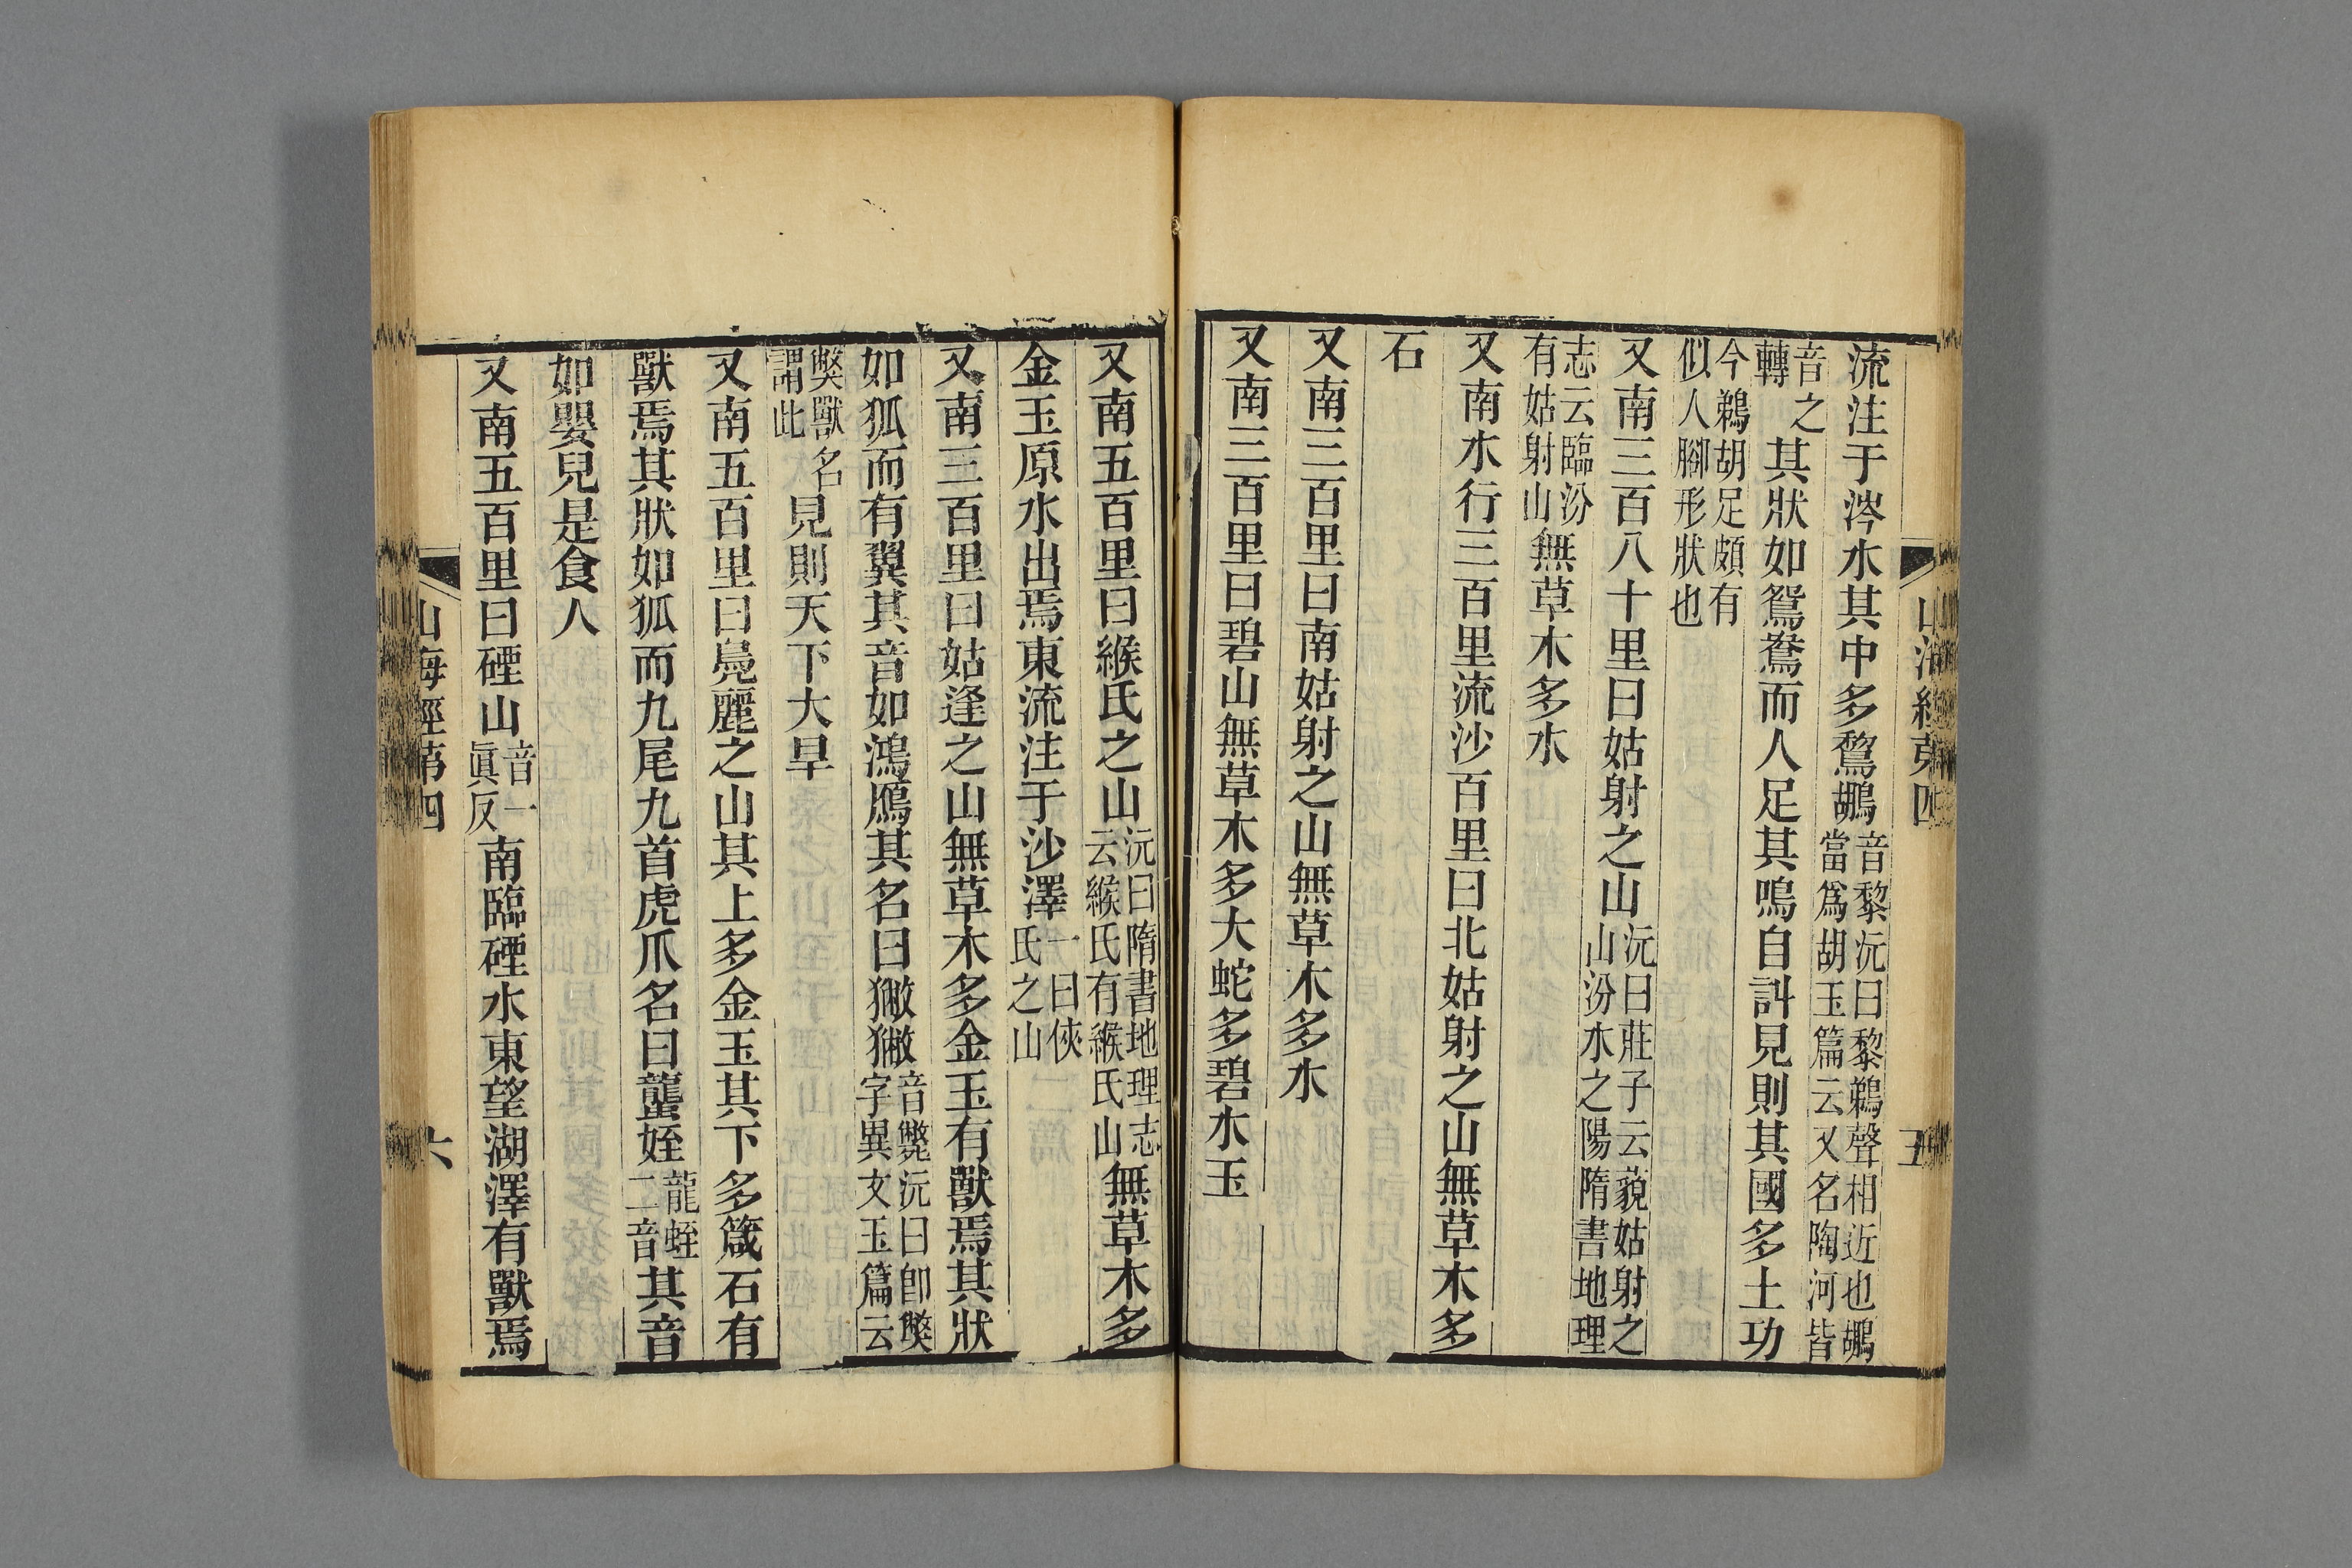 山海經第四
五
流注于涔水其中多鵹鶘音黎沅曰黎鵜聲相近也鶘當爲胡玉篇云又名陶河皆
音之轉其狀如鴛鴦而人足其鳴自訆見則其國多土功
今鵜胡足頗有似人腳形狀也
又南三百八十里曰姑射之山沅曰莊子云藐姑射之山汾水之陽隋書地理
志云臨汾有姑射山無草木多水
又南水行三百里流沙百里曰北姑射之山無草木多
石
又南三百里曰南姑射之山無草木多水
又南三百里曰碧山無草木多大蛇多碧水玉
又南五百里曰緱氏之山沅曰隋書地理志云緱氏有緱氏山無草木多
金玉原水出焉東流注于沙澤一曰俠氏之山
又南三百里曰姑逢之山無草木多金玉有獸焉其狀
如狐而有翼其音如鴻鴈其名曰獙獙音斃沅曰卽獘字異文玉篇云
獘獸名謂此見則天下大旱
又南五百里曰鳧麗之山其上多金玉其下多箴石有
獸焉其狀如狐而九尾九首虎爪名曰蠪姪龍蛭二音其音
如嬰兒是食人
又南五百里曰䃌山音一眞反南臨䃌水東望湖澤有獸焉
山海經第四
六